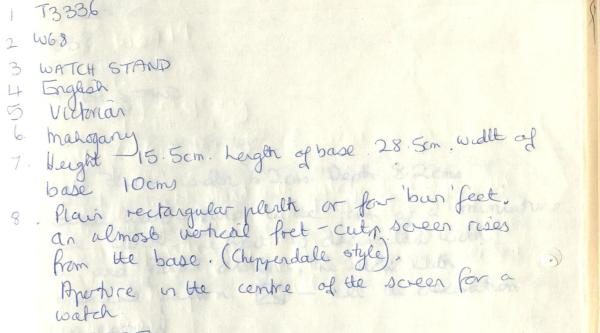 1 T3336
2 W68
3 WATCH STAND
4 English
5 Victorian
6. Mahogany
7. Height - 15.5cm. Length of base 28.5cm. Width of
base 10cms
8. Plain rectangular plinth or four 'bun' feet.
An almost vertical fret-cut screen rises
from the base. (Chipperdale style).
Aperture in the centre of the screen for a
watch